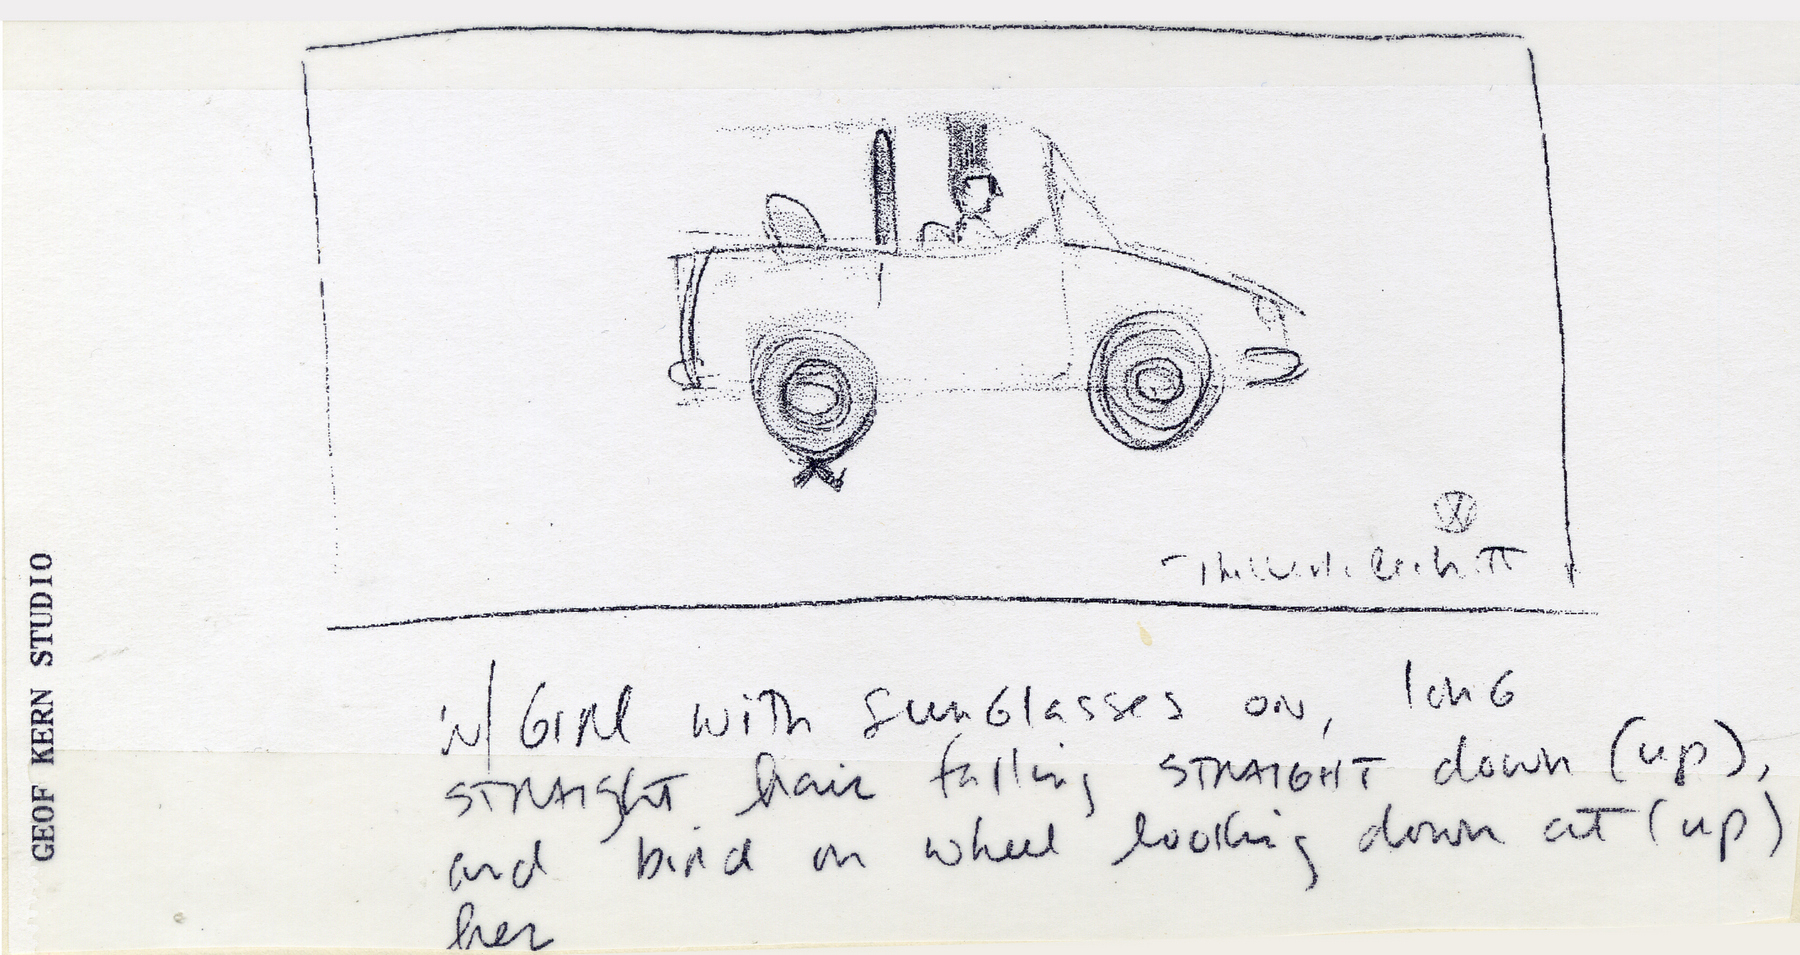 GEOF KERN STUDIO
w/ GIRl with SunGlasses on, lonG
STRAIGhT hair falling STRAIGHT down (up),
and bird on wheel looking down at (up)
her